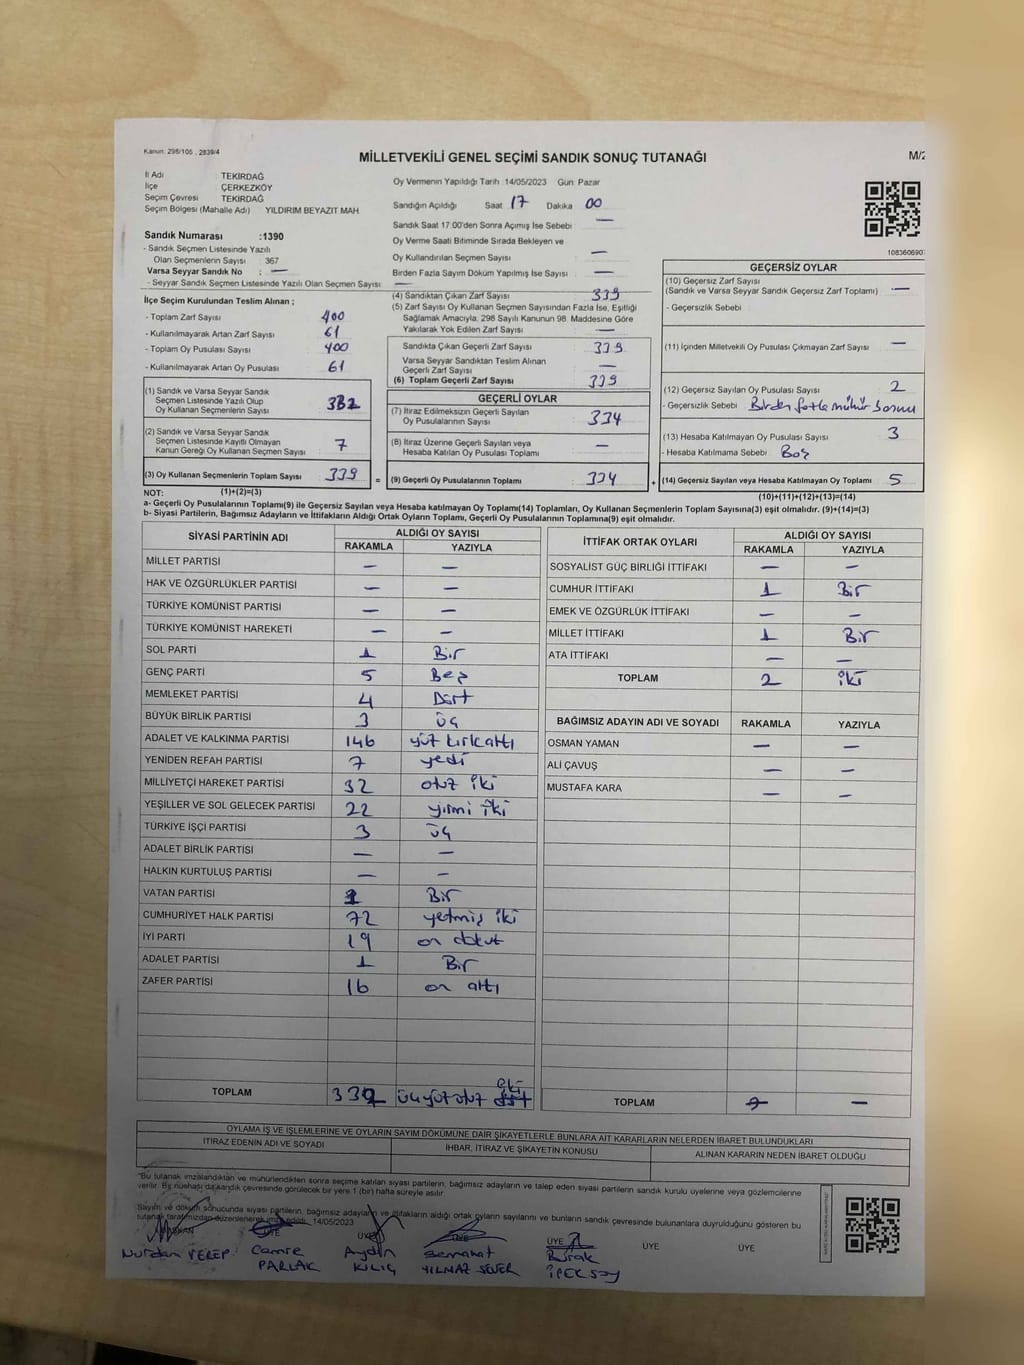 Kanun: 298/105 , 2839/4
MİLLETVEKİLİ GENEL SEÇİMİ SANDIK SONUÇ TUTANAĞI
İl Adı TEKİRDAĞ
İlçe ÇERKEZKÖY
Seçim Çevresi TEKİRDAĞ
Seçim Bölgesi (Mahalle Adı) YILDIRIM BEYAZIT MAH.
Sandık Numarası :1390
- Sandık Seçmen Listesinde Yazılı
Olan Seçmenlerin Sayısı : 367
Varsa Seyyar Sandık No : —
- Seyyar Sandık Seçmen Listesinde Yazılı Olan Seçmen Sayısı: —
Oy Vermenin Yapıldığı Tarih :14/05/2023 Gün: Pazar
Sandığın Açıldığı Saat 17 Dakika 00
Sandık Saat 17:00'den Sonra Açımış İse Sebebi —
Oy Verme Saati Bitiminde Sırada Bekleyen ve
Oy Kullandırılan Seçmen Sayısı —
Birden Fazla Sayım Döküm Yapılmış İse Sayısı —
108360690
İlçe Seçim Kurulundan Teslim Alınan ;
- Toplam Zarf Sayısı 400
- Kullanılmayarak Artan Zarf Sayısı 61
- Toplam Oy Pusulası Sayısı 400
- Kullanılmayarak Artan Oy Pusulası 61
(1) Sandık ve Varsa Seyyar Sandık
Seçmen Listesinde Yazılı Olup
Oy Kullanan Seçmenlerin Sayısı 332
(2) Sandık ve Varsa Seyyar Sandık
Seçmen Listesinde Kayıtlı Olmayan
Kanun Gereği Oy Kullanan Seçmen Sayısı 7
(3) Oy Kullanan Seçmenlerin Toplam Sayısı 339
(1)+(2)=(3)
(4) Sandıktan Çıkan Zarf Sayısı 339
(5) Zarf Sayısı Oy Kullanan Seçmen Sayısından Fazla İse, Eşitliği
Sağlamak Amacıyla, 298 Sayılı Kanunun 98. Maddesine Göre
Yakılarak Yok Edilen Zarf Sayısı —
Sandıkta Çıkan Geçerli Zarf Sayısı 339
Varsa Seyyar Sandıktan Teslim Alınan
Geçerli Zarf Sayısı —
(6) Toplam Geçerli Zarf Sayısı 339
GEÇERLİ OYLAR
(7) İtiraz Edilmeksizin Geçerli Sayılan
Oy Pusulalarının Sayısı 334
(8) İtiraz Üzerine Geçerli Sayılan veya
Hesaba Katılan Oy Pusulası Toplamı —
= (9) Geçerli Oy Pusulalarının Toplamı 334
GEÇERSİZ OYLAR
(10) Geçersiz Zarf Sayısı
(Sandık ve Varsa Seyyar Sandık Geçersiz Zarf Toplamı) —
- Geçersizlik Sebebi
(11) İçinden Milletvekili Oy Pusulası Çıkmayan Zarf Sayısı —
(12) Geçersiz Sayılan Oy Pusulası Sayısı 2
- Geçersizlik Sebebi Birden fazla mühür
(13) Hesaba Katılmayan Oy Pusulası Sayısı 3
- Hesaba Katılmama Sebebi Boş
+ (14) Geçersiz Sayılan veya Hesaba Katılmayan Oy Toplamı 5
(10)+(11)+(12)+(13)=(14)
NOT:
a- Geçerli Oy Pusulalarının Toplamı(9) ile Geçersiz Sayılan veya Hesaba katılmayan Oy Toplamı(14) Toplamları, Oy Kullanan Seçmenlerin Toplam Sayısına(3) eşit olmalıdır. (9)+(14)=(3)
b- Siyasi Partilerin, Bağımsız Adayların ve İttifakların Aldığı Ortak Oyların Toplamı, Geçerli Oy Pusulalarının Toplamına(9) eşit olmalıdır.
SİYASİ PARTİNİN ADI ALDIĞI OY SAYISI
RAKAMLA YAZIYLA
MİLLET PARTİSİ — —
HAK VE ÖZGÜRLÜKLER PARTİSİ — —
TÜRKİYE KOMÜNİST PARTİSİ — —
TÜRKİYE KOMÜNİST HAREKETİ — —
SOL PARTİ 1 Bir
GENÇ PARTİ 5 Beş
MEMLEKET PARTİSİ 4 Dört
BÜYÜK BİRLİK PARTİSİ 3 üç
ADALET VE KALKINMA PARTİSİ 146 yüz kırk altı
YENİDEN REFAH PARTİSİ 7 yedi
MİLLİYETÇİ HAREKET PARTİSİ 32 otuz iki
YEŞİLLER VE SOL GELECEK PARTİSİ 22 yirmi iki
TÜRKİYE İŞÇİ PARTİSİ 3 üç
ADALET BİRLİK PARTİSİ — —
HALKIN KURTULUŞ PARTİSİ — —
VATAN PARTİSİ 1 Bir
CUMHURİYET HALK PARTİSİ 72 yetmiş iki
İYİ PARTİ 19 on dokuz
ADALET PARTİSİ 1 Bir
ZAFER PARTİSİ 16 on altı
TOPLAM 332 üçyüz otuz iki
İTTİFAK ORTAK OYLARI ALDIĞI OY SAYISI
RAKAMLA YAZIYLA
SOSYALİST GÜÇ BİRLİĞİ İTTİFAKI — —
CUMHUR İTTİFAKI 1 Bir
EMEK VE ÖZGÜRLÜK İTTİFAKI — —
MİLLET İTTİFAKI 1 Bir
ATA İTTİFAKI — —
TOPLAM 2 iki
BAĞIMSIZ ADAYIN ADI VE SOYADI RAKAMLA YAZIYLA
OSMAN YAMAN — —
ALİ ÇAVUŞ — —
MUSTAFA KARA — —
TOPLAM —
OYLAMA İŞ VE İŞLEMLERİNE VE OYLARIN SAYIM DÖKÜMÜNE DAİR ŞİKAYETLERLE BUNLARA AİT KARARLARIN NELERDEN İBARET BULUNDUKLARI
İTİRAZ EDENİN ADI VE SOYADI İHBAR, İTİRAZ VE ŞİKAYETİN KONUSU ALINAN KARARIN NEDEN İBARET OLDUĞU
"Bu tutanak imzalandıktan ve mühürlendikten sonra seçime katılan siyasi partilerin, bağımsız adayların ve talep eden siyasi partilerin sandık kurulu üyelerine veya gözlemcilerine
verilir. Bir nüshası da sandık çevresinde görülecek bir yere 1 (bir) hafta süreyle asılır.
Sayım ve döküm sonucunda siyasi partilerin, bağımsız adayların ve ittifakların aldığı ortak oyların sayılarını ve bunların sandık çevresinde bulunanlara duyrulduğunu gösteren bu
tutanak tarafımızdan düzenlenerek imzalandı. 14/05/2023
BAŞKAN ÜYE ÜYE ÜYE ÜYE ÜYE ÜYE
Nurdan Cemre Aydın Semahat Burak
PARLAK KILIÇ YILMAZ SEVER İPEKSOY